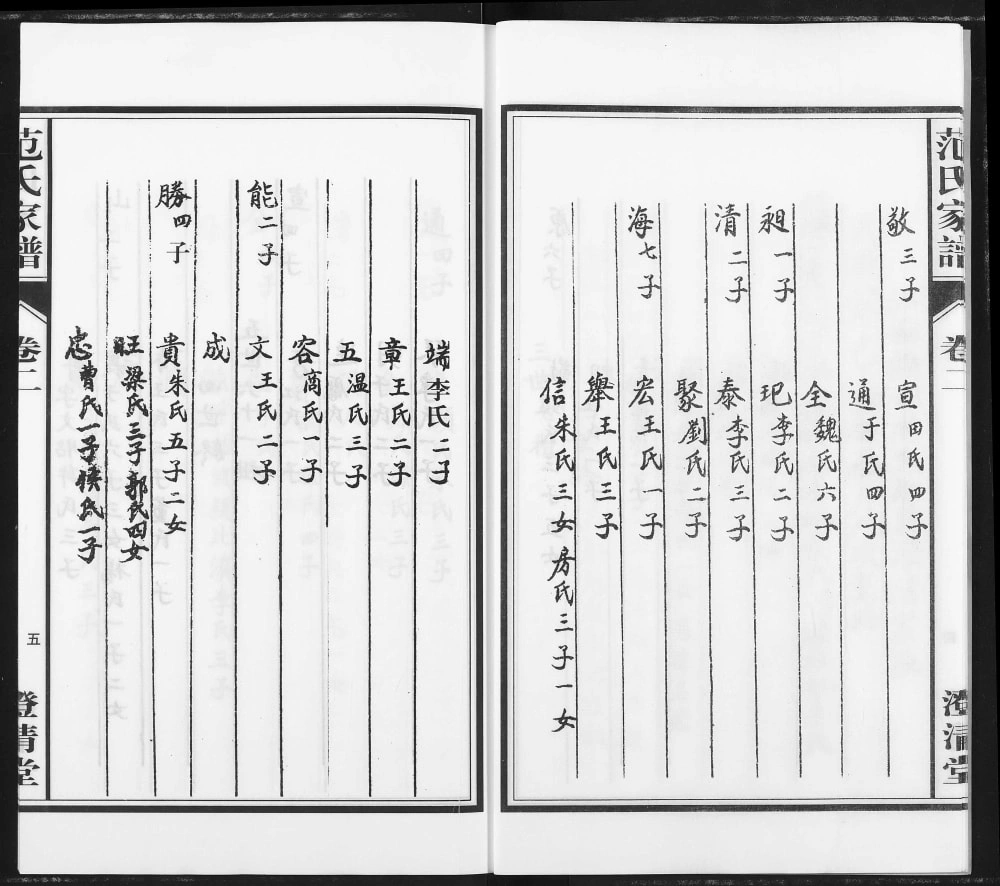 范氏家譜
卷二
澄清堂
敬三子
宣田氏四子
通于氏四子
全魏氏六子
昶一子
玘李氏二子
清二子
泰李氏三子
聚劉氏二子
海七子
宏王氏一子
舉王氏三子
信朱氏三女房氏三子一女
端李氏二子
章王氏二子
五温氏三子
容商氏一子
能二子
文王氏二子
成
勝四子
貴朱氏五子二女
旺梁氏三子郭氏四女
忠曹氏一子侯氏一子
范氏家譜
卷二
五
澄清堂